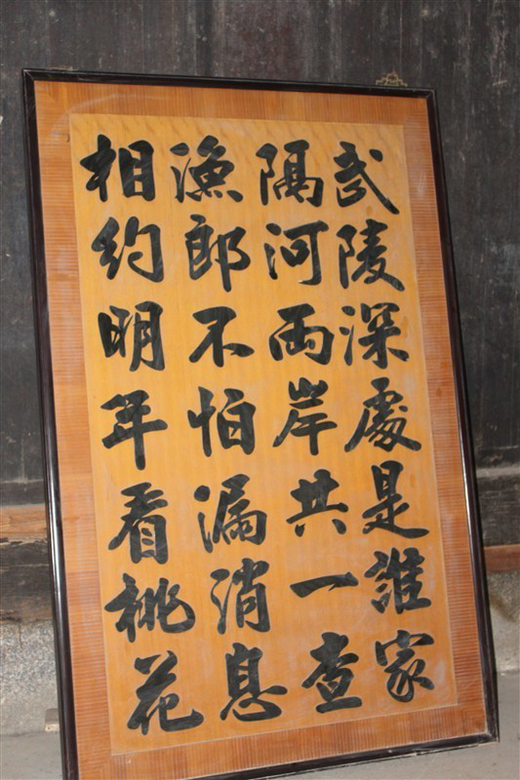 武陵深處是誰家
隔河兩岸共一查
漁郎不怕漏消息
相約明年看桃花